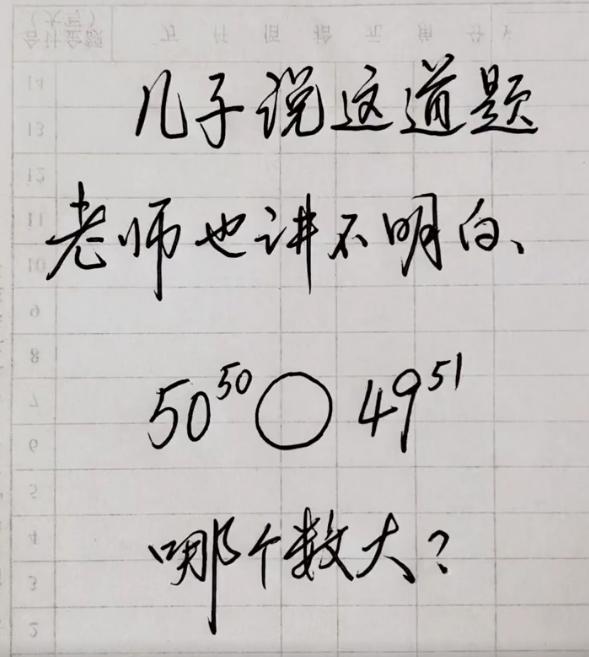 儿子说这道题
老师也讲不明白、
50⁵⁰○49⁵¹
哪个数大？